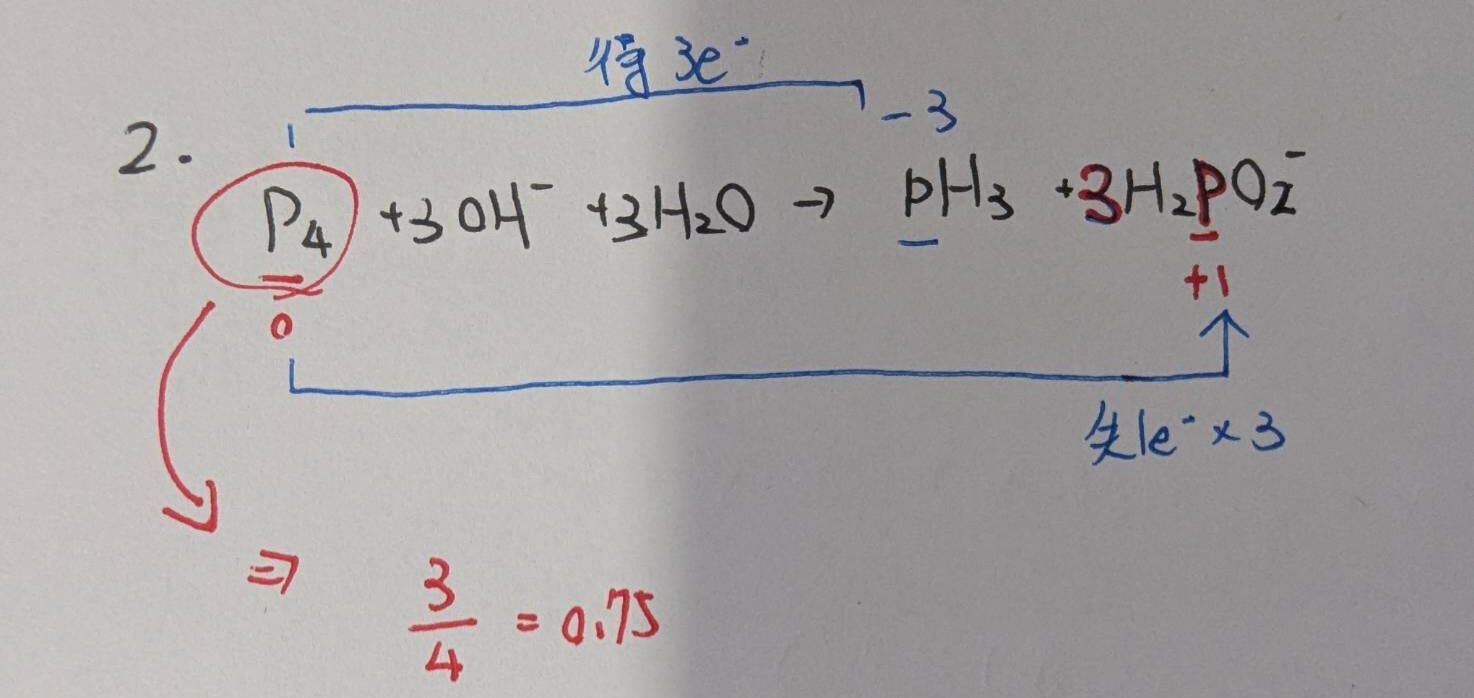 得 3e⁻
-3
2. P₄ +3OH⁻ +3H₂O → PH₃ +3H₂PO₂⁻
0 +1
失1e⁻×3
⇒ 3/4 = 0.75